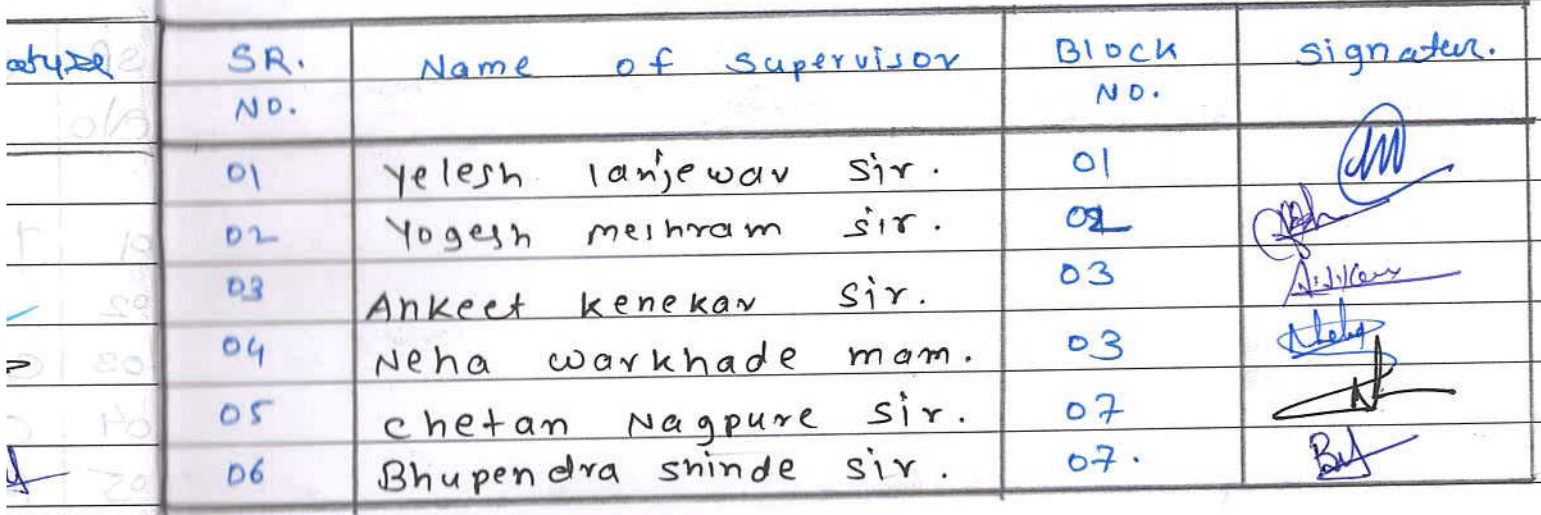 SR. Name of Supervisor Block signatur.
NO. NO.
01 Yelesh lanjewar sir. 01
02 Yogesh meshram sir. 02
03 Ankeet kenekar sir. 03
04 Neha warkhade mam. 03 Neha
05 chetan Nagpure sir. 07
06 Bhupendra shinde sir. 07.